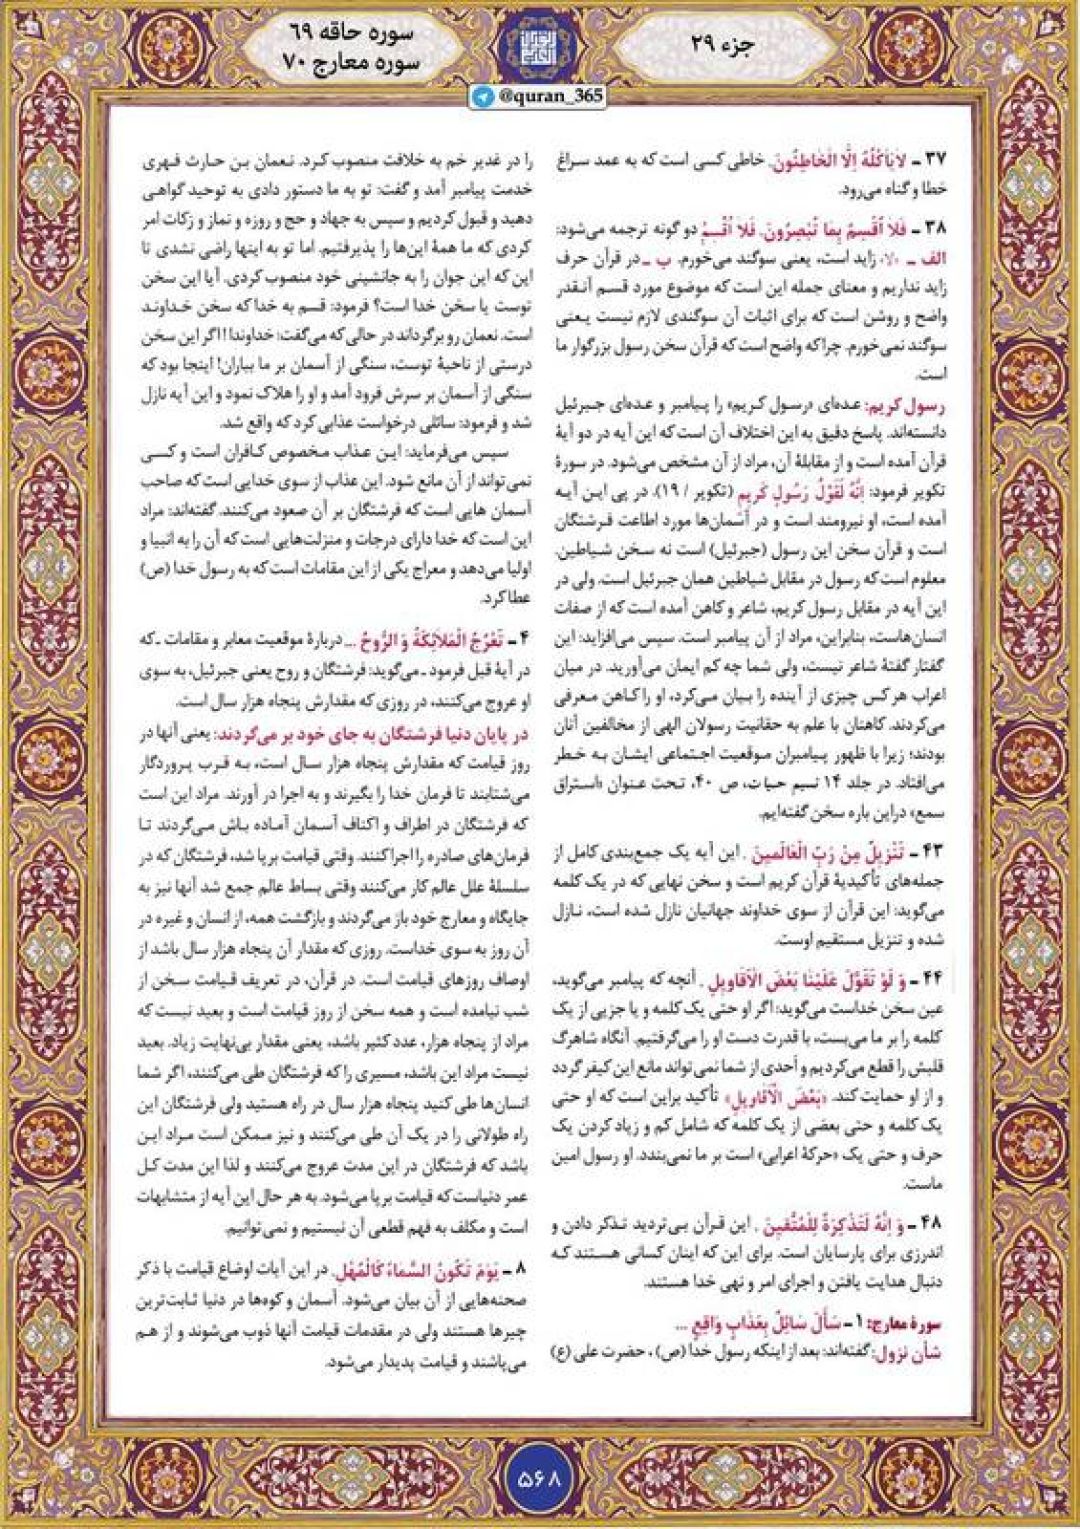 جزء ۲۹
سوره حاقه ۶۹
سوره معارج ۷۰
@quran_365
۳۷ - لاٰیَأْکُلُهُ إِلَّا الْخٰاطِئُونَ. خاطی کسی است که به عمد سراغ
خطا و گناه می‌رود.
۳۸ - فَلاٰ اُقْسِمُ بِمٰا تُبْصِرُونَ. فَلاٰ اُقْسِمُ دو گونه ترجمه می‌شود:
الف - «لا» زاید است، یعنی سوگند می‌خورم. ب - در قرآن حرف
زاید نداریم و معنای جمله این است که موضوع مورد قسم آنقدر
واضح و روشن است که برای اثبات آن سوگندی لازم نیست یعنی
سوگند نمی‌خورم. چراکه واضح است که قرآن سخن رسول بزرگوار ما
است.
رسول کریم: عده‌ای «رسول کریم» را پیامبر و عده‌ای جبرئیل
دانسته‌اند. پاسخ دقیق به این اختلاف آن است که این آیه در دو آیهٔ
قرآن آمده است و از مقابلهٔ آن، مراد از آن مشخص می‌شود. در سورهٔ
تکویر فرمود: اِنَّهُ لَقَوْلُ رَسُولٍ کَرِیمٍ (تکویر / ۱۹). در پی این آیه
آمده است، او نیرومند است و در آسمان‌ها مورد اطاعت فرشتگان
است و قرآن سخن این رسول (جبرئیل) است نه سخن شیاطین.
معلوم است که رسول در مقابل شیاطین همان جبرئیل است. ولی در
این آیه در مقابل رسول کریم، شاعر و کاهن آمده است که از صفات
انسان‌هاست، بنابراین، مراد از آن پیامبر است. سپس می‌افزاید: این
گفتار گفتهٔ شاعر نیست، ولی شما چه کم ایمان می‌آورید. در میان
اعراب هر کس چیزی از آینده را بیان می‌کرد، او را کاهن معرفی
می‌کردند. کاهنان با علم به حقانیت رسولان الهی از مخالفین آنان
بودند؛ زیرا با ظهور پیامبران موقعیت اجتماعی ایشان به خطر
می‌افتاد. در جلد ۱۴ نسیم حیات، ص ۴۰، تحت عنوان «استراق
سمع» دراین باره سخن گفته‌ایم.
۴۳ - تَنْزِیلٌ مِنْ رَبِّ الْعٰالَمِینَ. این آیه یک جمع‌بندی کامل از
جمله‌های تأکیدیهٔ قرآن کریم است و سخن نهایی که در یک کلمه
می‌گوید: این قرآن از سوی خداوند جهانیان نازل شده است، نازل
شده و تنزیل مستقیم اوست.
۴۴ - وَ لَوْ تَقَوَّلَ عَلَیْنٰا بَعْضَ الْاَقٰاوِیلِ. آنچه که پیامبر می‌گوید،
عین سخن خداست می‌گوید: اگر او حتی یک کلمه و یا جزیی از یک
کلمه را بر ما می‌بست، با قدرت دست او را می‌گرفتیم. آنگاه شاهرگ
قلبش را قطع می‌کردیم و اَحدی از شما نمی‌تواند مانع این کیفر گردد
و از او حمایت کند. «بَعْضَ الْاَقٰاوِیلِ» تأکید براین است که او حتی
یک کلمه و حتی بعضی از یک کلمه که شامل کم و زیاد کردن یک
حرف و حتی یک «حرکهٔ اعرابی» است بر ما نمی‌بندد. او رسول امین
ماست.
۴۸ - وَ اِنَّهُ لَتَذْکِرَةٌ لِلْمُتَّقِینَ. این قرآن بی‌تردید تذکر دادن و
اندرزی برای پارسایان است. برای این که اینان کسانی هستند که
دنبال هدایت یافتن و اجرای امر و نهی خدا هستند.
سورهٔ معارج: ۱- سَأَلَ سٰائِلٌ بِعَذٰابٍ وٰاقِعٍ ...
شأن نزول: گفته‌اند: بعد از اینکه رسول خدا (ص)، حضرت علی (ع)
را در غدیر خم به خلافت منصوب کرد. نعمان بن حارث فهری
خدمت پیامبر آمد و گفت: تو به ما دستور دادی به توحید گواهی
دهید و قبول کردیم و سپس به جهاد و حج و روزه و نماز و زکات امر
کردی که ما همهٔ این‌ها را پذیرفتیم. اما تو به اینها راضی نشدی تا
این که این جوان را به جانشینی خود منصوب کردی. آیا این سخن
توست یا سخن خدا است؟ فرمود: قسم به خدا که سخن خداوند
است. نعمان رو برگرداند در حالی که می‌گفت: خداوندا! اگر این سخن
درستی از ناحیهٔ توست، سنگی از آسمان بر ما بباران! اینجا بود که
سنگی از آسمان بر سرش فرود آمد و او را هلاک نمود و این آیه نازل
شد و فرمود: سائلی درخواست عذابی کرد که واقع شد.
سپس می‌فرماید: این عذاب مخصوص کافران است و کسی
نمی‌تواند از آن مانع شود. این عذاب از سوی خدایی است که صاحب
آسمان هایی است که فرشتگان بر آن صعود می‌کنند. گفته‌اند: مراد
این است که خدا دارای درجات و منزلت‌هایی است که آن را به انبیا و
اولیا می‌دهد و معراج یکی از این مقامات است که به رسول خدا (ص)
عطا کرد.
۴ - تَعْرُجُ الْمَلاٰئِکَةُ وَ الرُّوحُ ... دربارهٔ موقعیت معابر و مقامات ـ که
در آیهٔ قبل فرمود ـ می‌گوید: فرشتگان و روح یعنی جبرئیل، به سوی
او عروج می‌کنند، در روزی که مقدارش پنجاه هزار سال است.
در پایان دنیا فرشتگان به جای خود بر می‌گردند: یعنی آنها در
روز قیامت که مقدارش پنجاه هزار سال است، به قرب پروردگار
می‌شتابند تا فرمان خدا را بگیرند و به اجرا در آورند. مراد این است
که فرشتگان در اطراف و اکناف آسمان آماده باش می‌گردند تا
فرمان‌های صادره را اجرا کنند. وقتی قیامت برپا شد، فرشتگان که در
سلسلهٔ علل عالم کار می‌کنند وقتی بساط عالم جمع شد آنها نیز به
جایگاه و معارج خود باز می‌گردند و بازگشت همه، از انسان و غیره در
آن روز به سوی خداست. روزی که مقدار آن پنجاه هزار سال باشد از
اوصاف روزهای قیامت است. در قرآن، در تعریف قیامت سخن از
شب نیامده است و همه سخن از روز قیامت است و بعید نیست که
مراد از پنجاه هزار، عدد کثیر باشد، یعنی مقدار بی‌نهایت زیاد. بعید
نیست مراد این باشد، مسیری را که فرشتگان طی می‌کنند، اگر شما
انسان‌ها طی کنید پنجاه هزار سال در راه هستید ولی فرشتگان این
راه طولانی را در یک آن طی می‌کنند و نیز ممکن است مراد این
باشد که فرشتگان در این مدت عروج می‌کنند و لذا این مدت کل
عمر دنیاست که قیامت برپا می‌شود. به هر حال این آیه از متشابهات
است و مکلف به فهم قطعی آن نیستیم و نمی‌توانیم.
۸ - یَوْمَ تَکُونُ السَّمٰاءُ کَالْمُهْلِ. در این آیات اوضاع قیامت با ذکر
صحنه‌هایی از آن بیان می‌شود. آسمان و کوه‌ها در دنیا ثابت‌ترین
چیزها هستند ولی در مقدمات قیامت آنها ذوب می‌شوند و از هم
می‌پاشند و قیامت پدیدار می‌شود.
۵۶۸